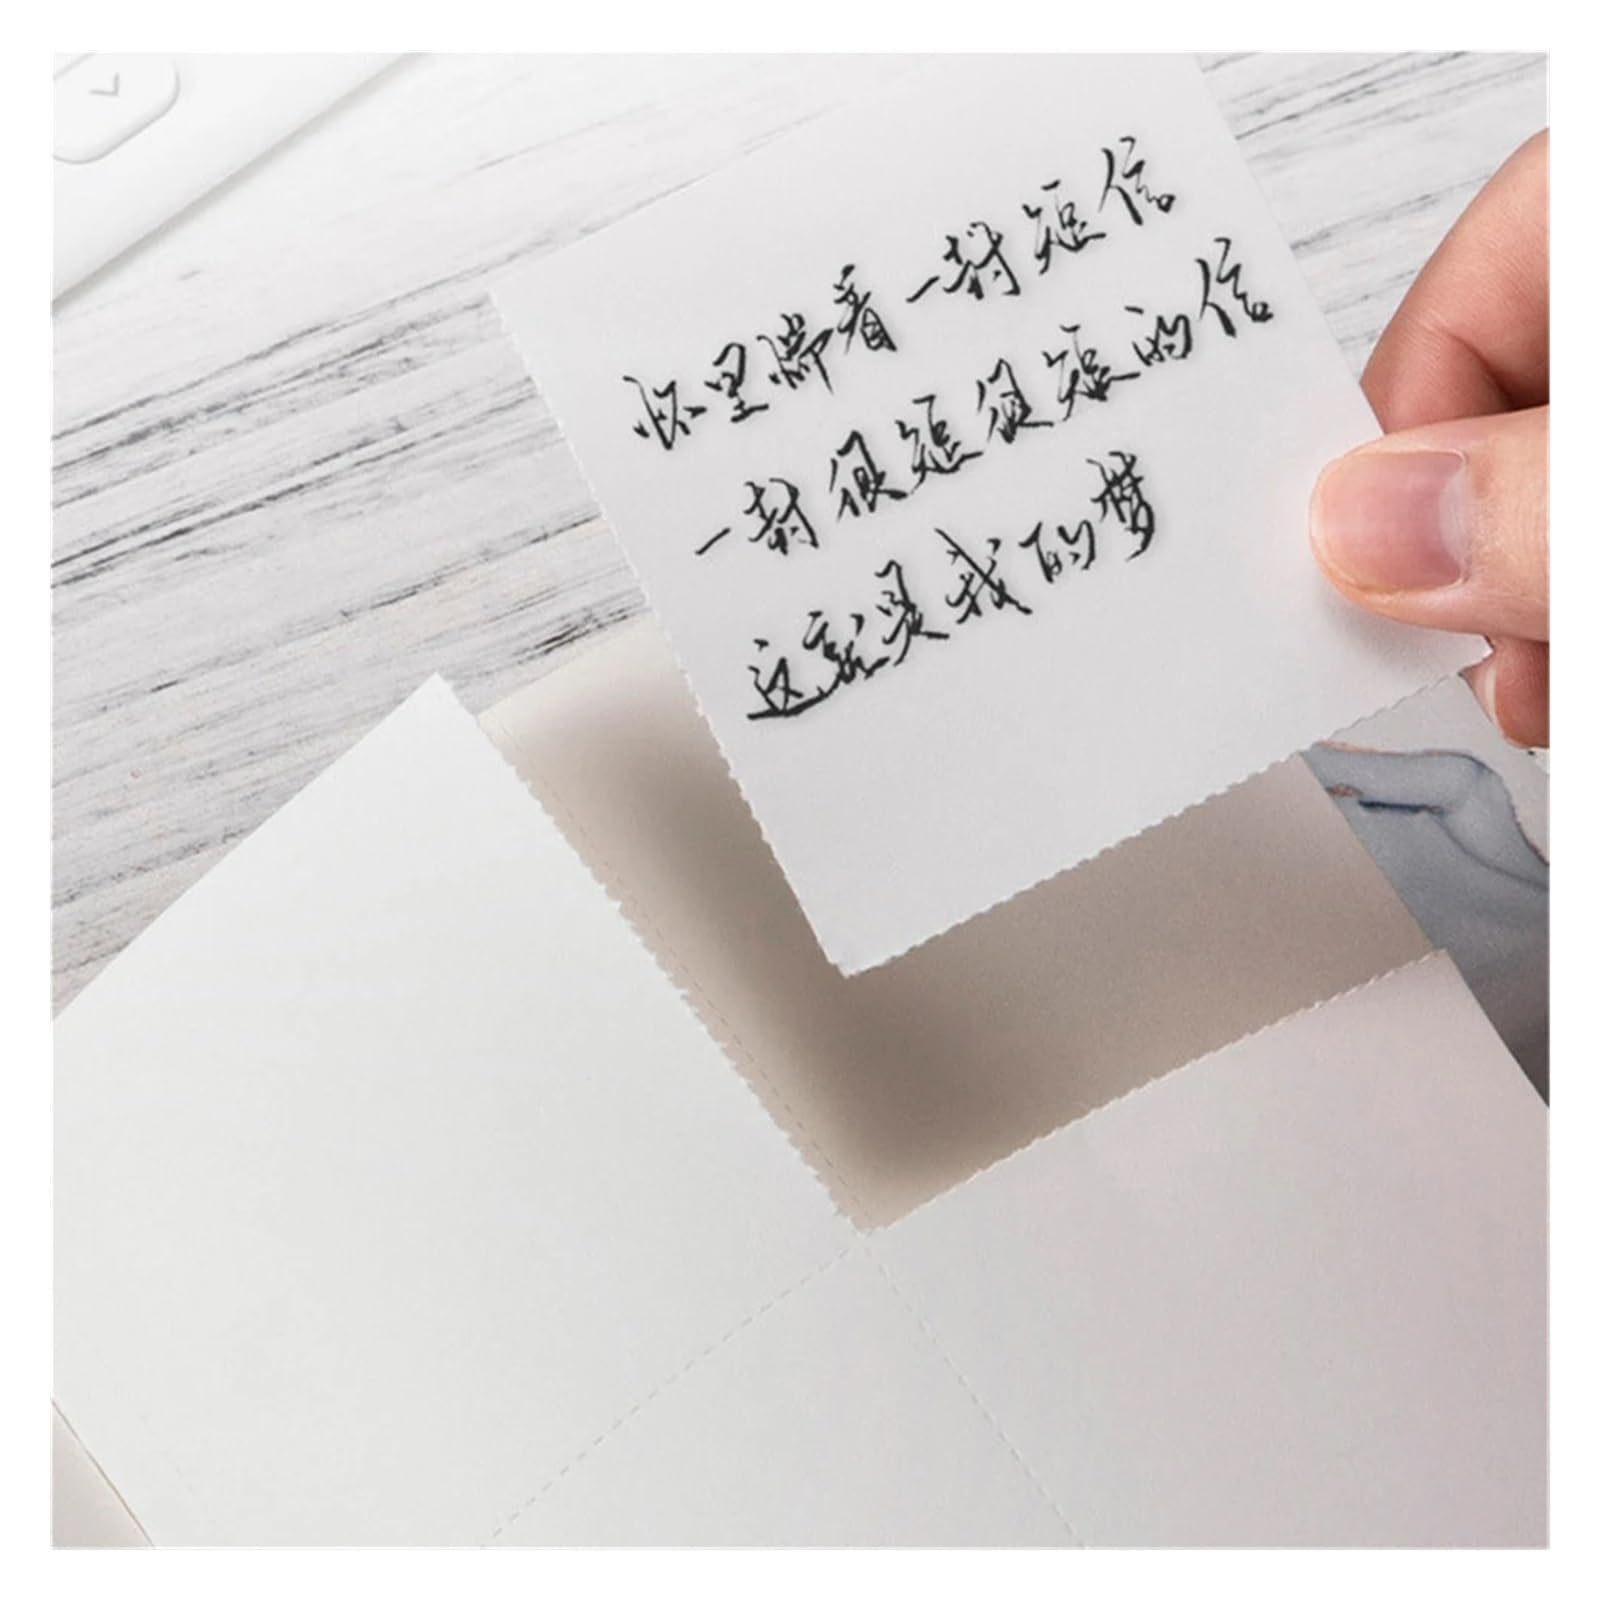 怀里揣着一封短信
一封很短很短的信
这就是我的梦